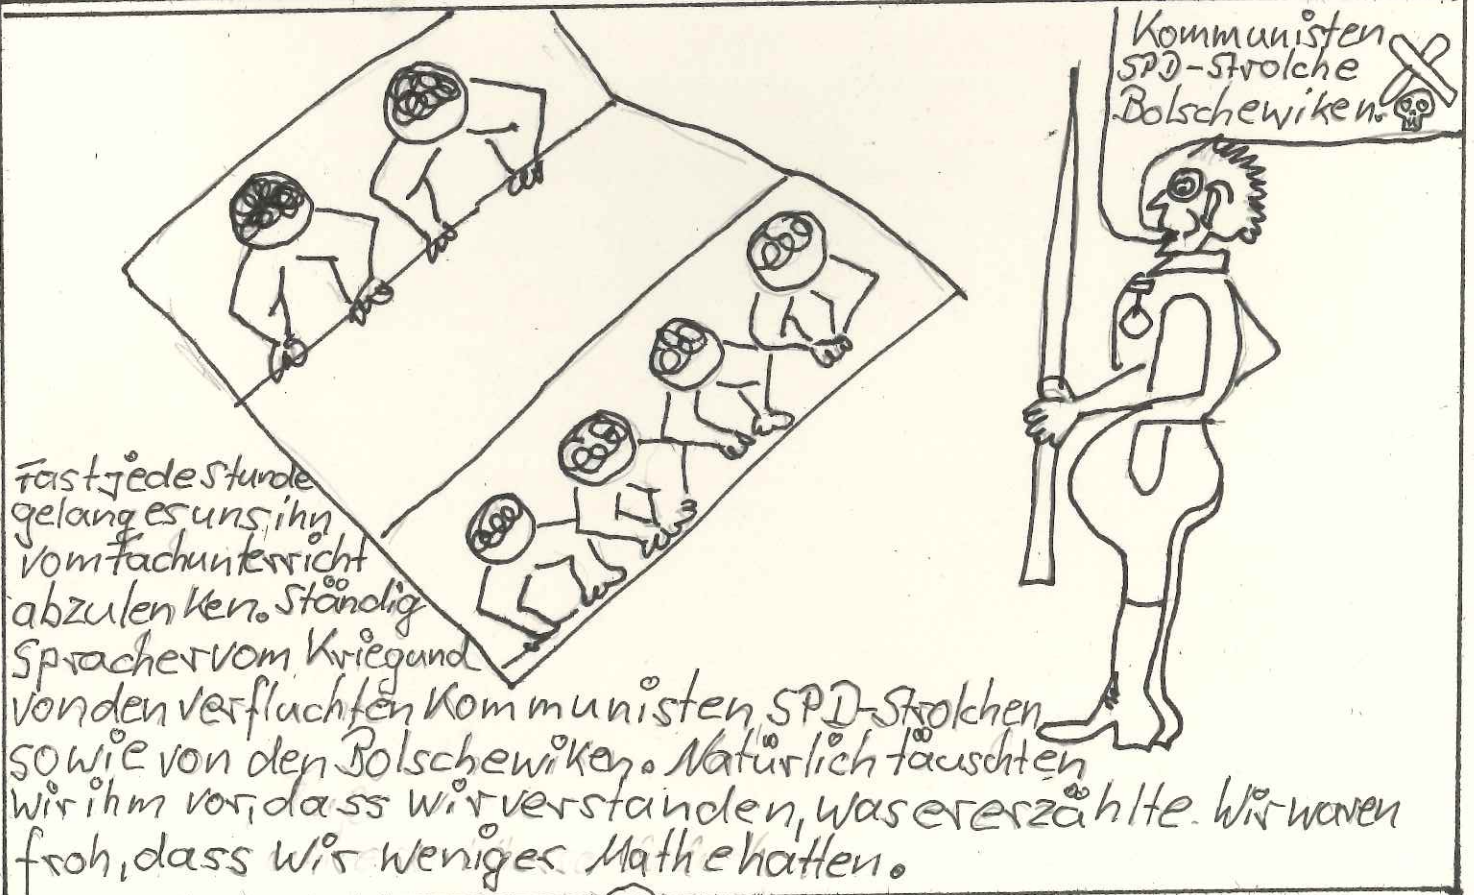 Kommunisten
SPD-Strolche
Bolschewiken.
Fast jede Stunde
gelang es uns, ihn
vom Fachunterricht
abzulenken. Ständig
sprach er vom Krieg und
von den verfluchten Kommunisten, SPD-Strolchen,
sowie von den Bolschewiken. Natürlich täuschten
wir ihm vor, dass wir verstanden, was er erzählte. Wir waren
froh, dass wir weniger Mathe hatten.